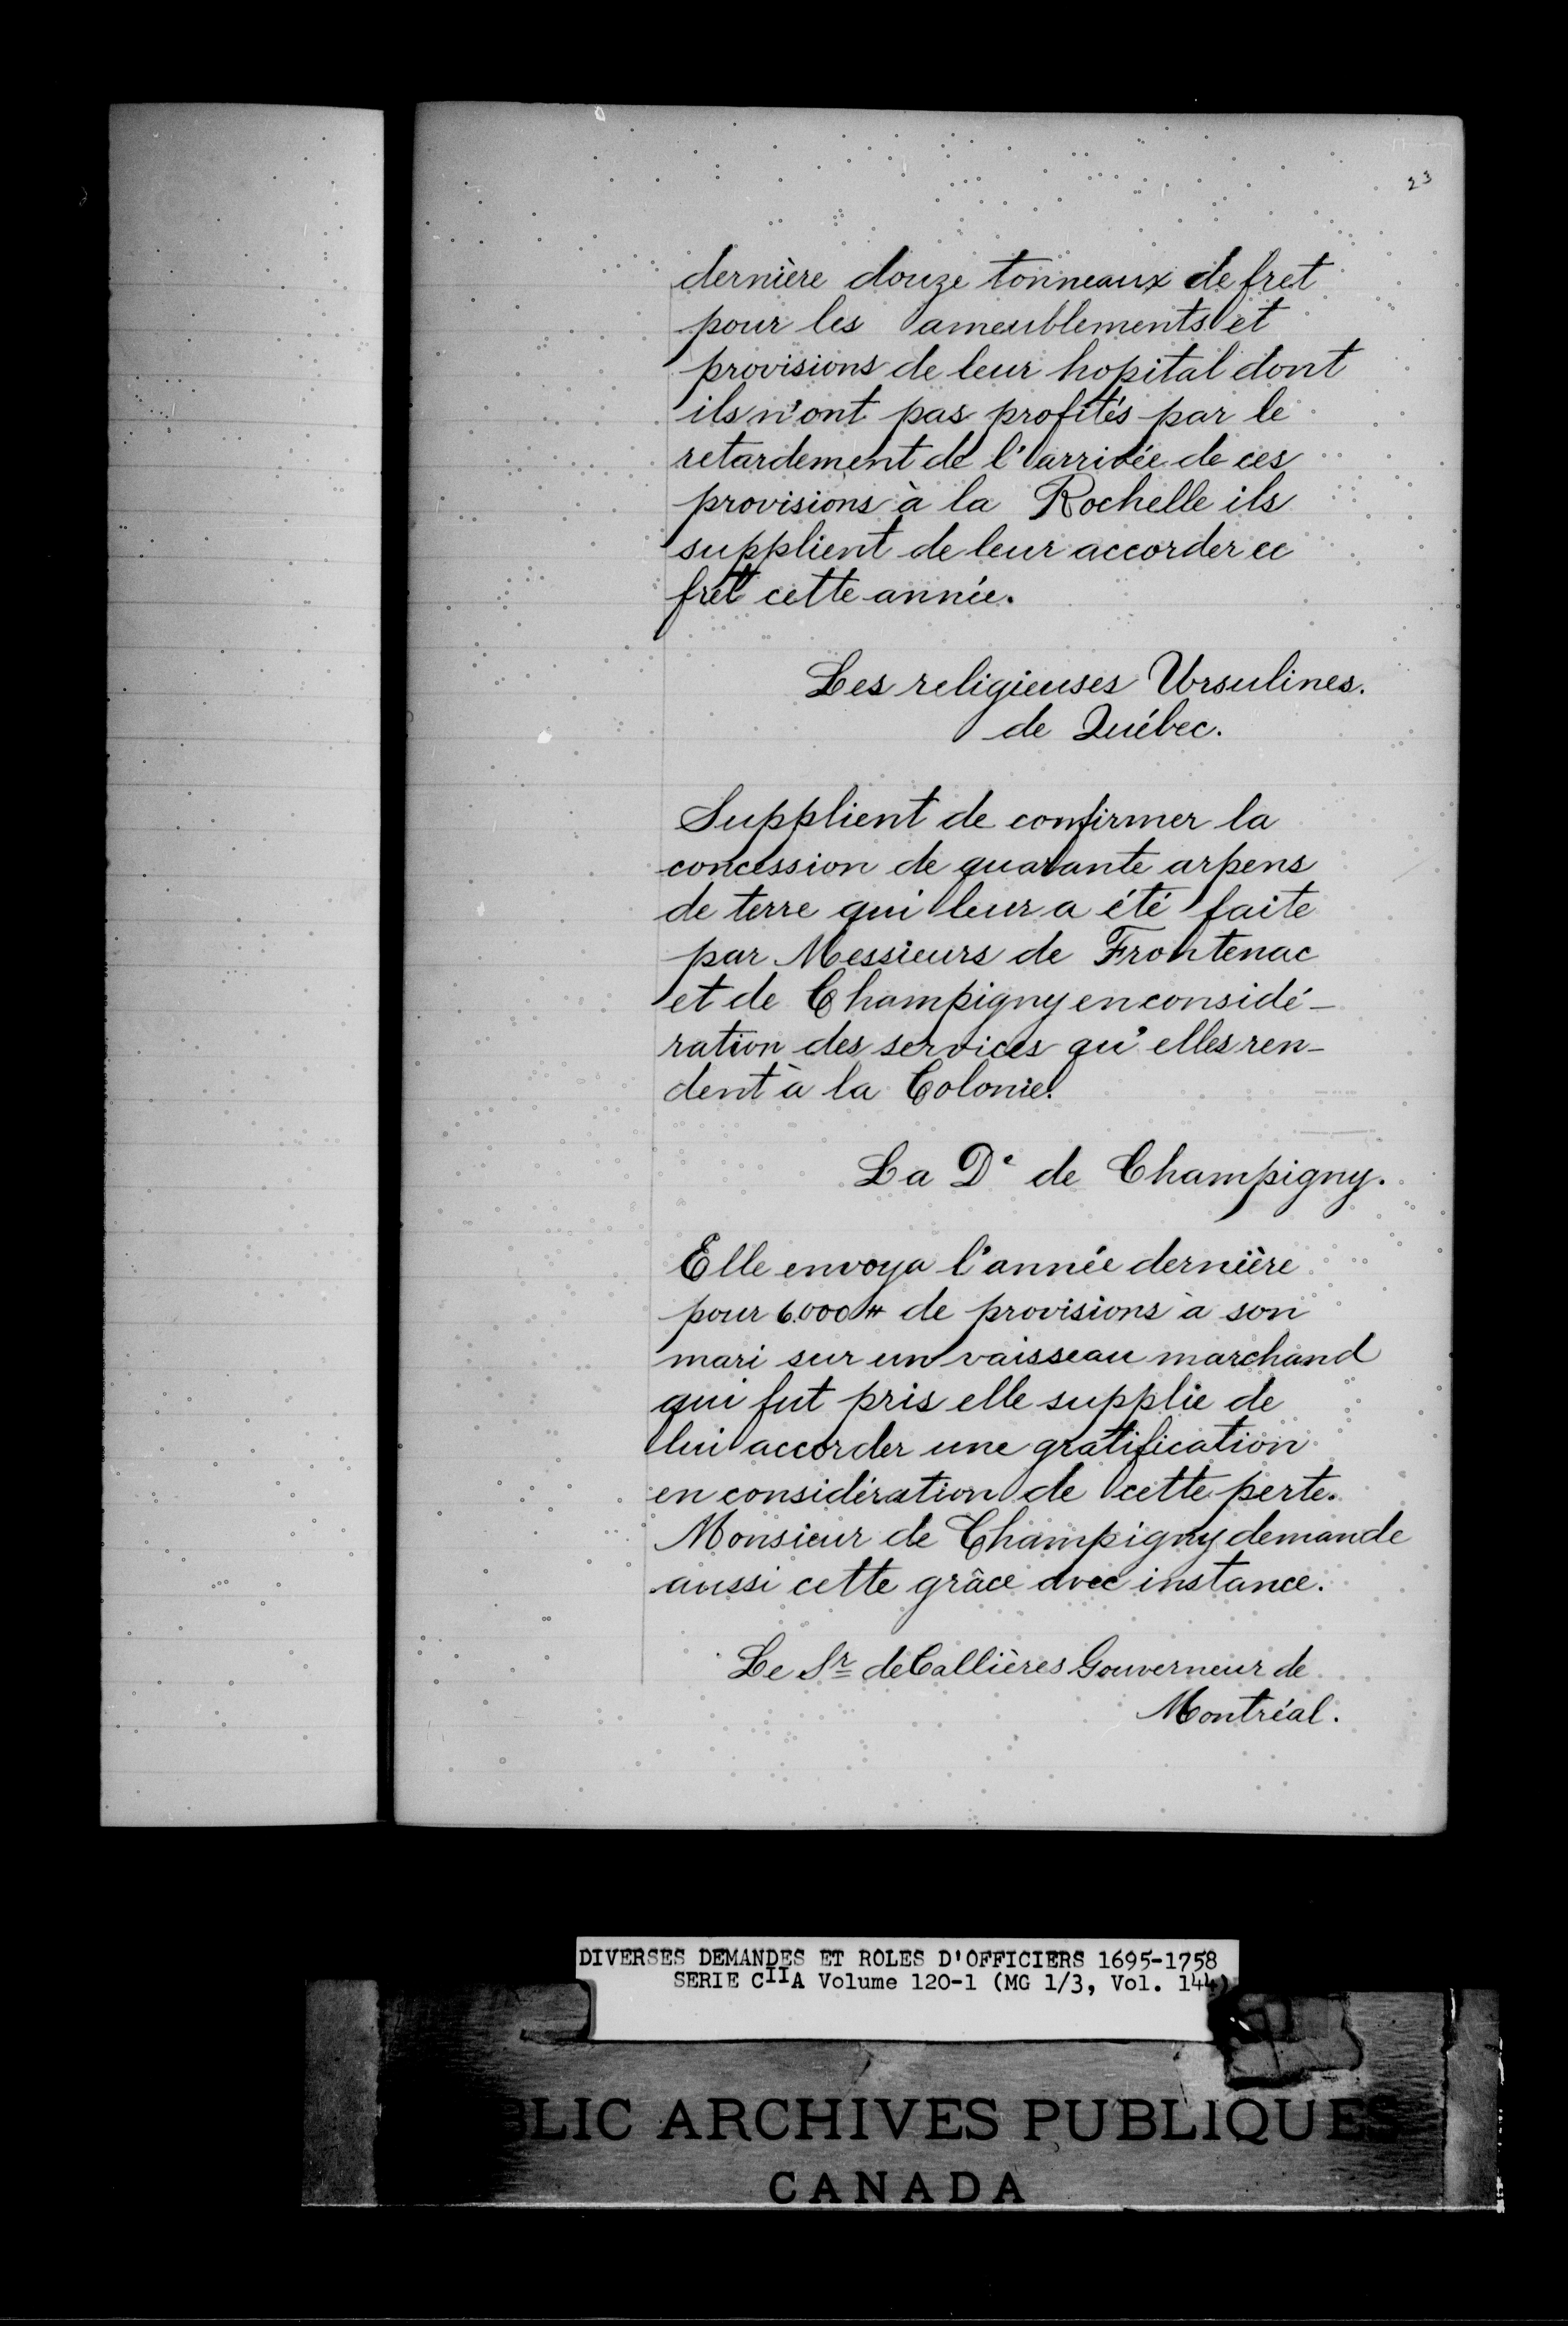 23
dernière douze tonneaux de fret
pour les ameublements et
provisions de leur hopital dont
ils n'ont pas profités par le
retardement de l'arrivée de ces
provisions à la Rochelle ils
supplient de leur accorder ce
fret cette année.
Les religieuses Ursulines.
de Québec.
Supplient de confirmer la
concession de quarante arpens
de terre qui leur a été faite
par Messieurs de Frontenac
et de Champigny en considé-
ration des services qu'elles ren-
dent à la Colonie.
La De de Champigny.
Elle envoya l'année dernière
pour 6.000 ₶ de provisions à son
mari sur un vaisseau marchand
qui fut pris elle supplie de
lui accorder une gratification
en considération de cette perte.
Monsieur de Champigny demande
aussi cette grâce avec instance.
Le Sr de Callières Gouverneur de
Montréal.
DIVERSES DEMANDES ET ROLES D'OFFICIERS 1695-1758
SERIE CIIA Volume 120-1 (MG 1/3, Vol. 144)
BLIC ARCHIVES PUBLIQUES
CANADA